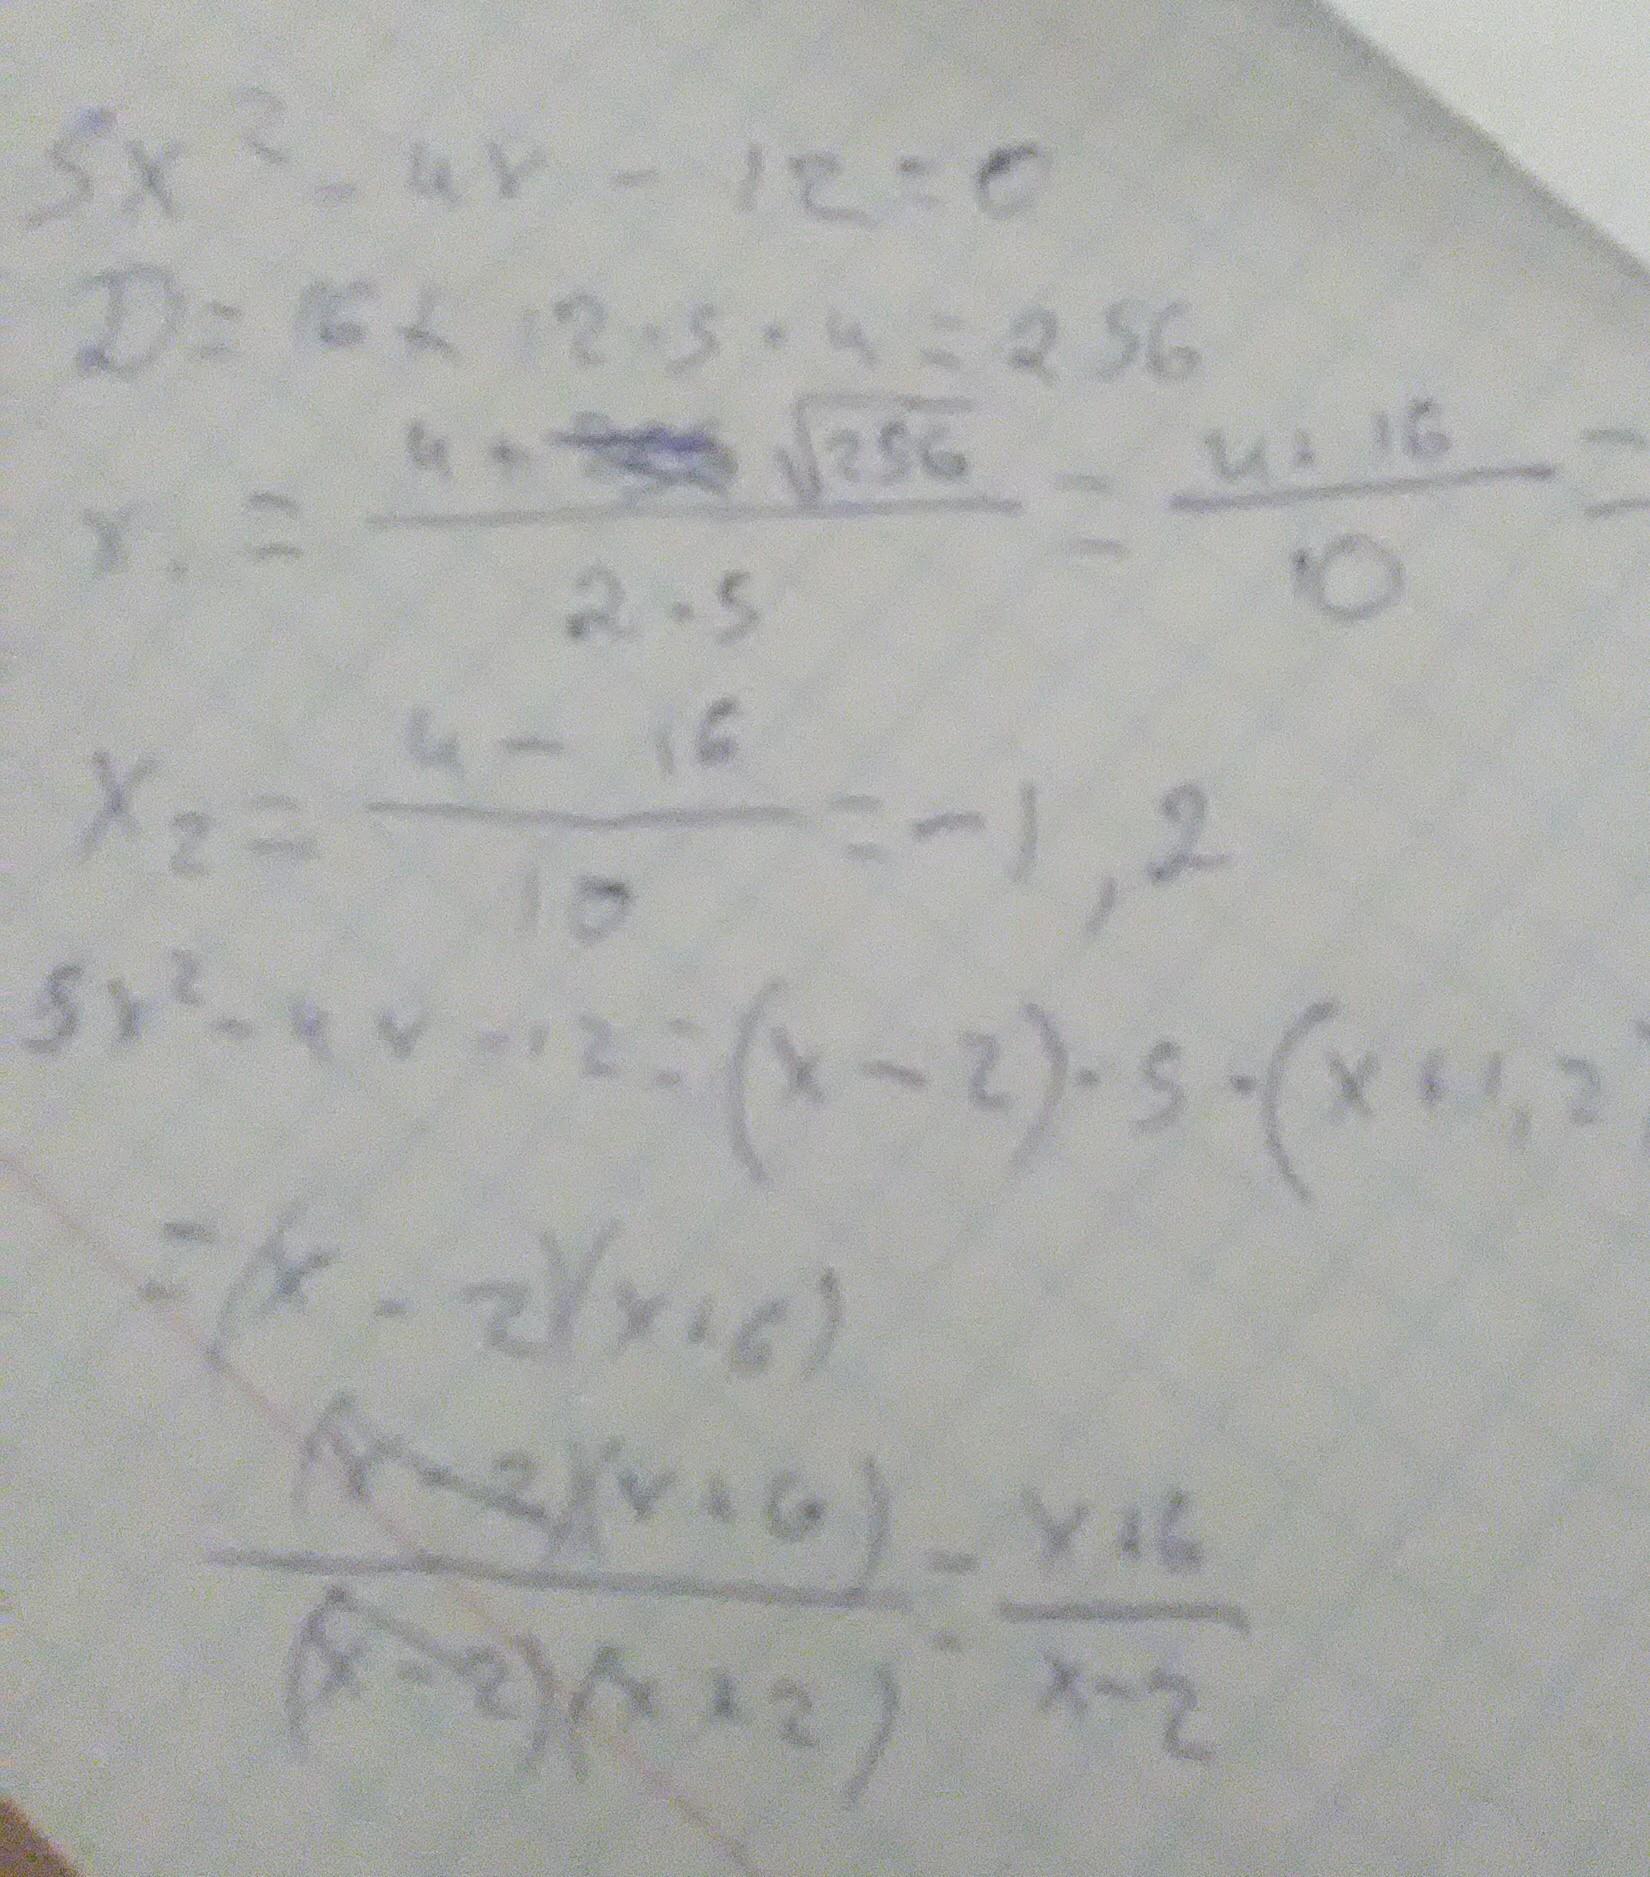 5x² - 4x - 12 = 0
D = 16 + 12 · 5 · 4 = 256
x₁ = (4 + √256) / (2 · 5) = (4 + 16) / 10 =
x₂ = (4 - 16) / 10 = -1,2
5x² - 4x - 12 = (x - 2) · 5 · (x + 1,2)
= (x - 2)(x + 6)
(x - 2)(x + 6) / (x - 2)(x + 2) = (x + 6) / (x - 2)